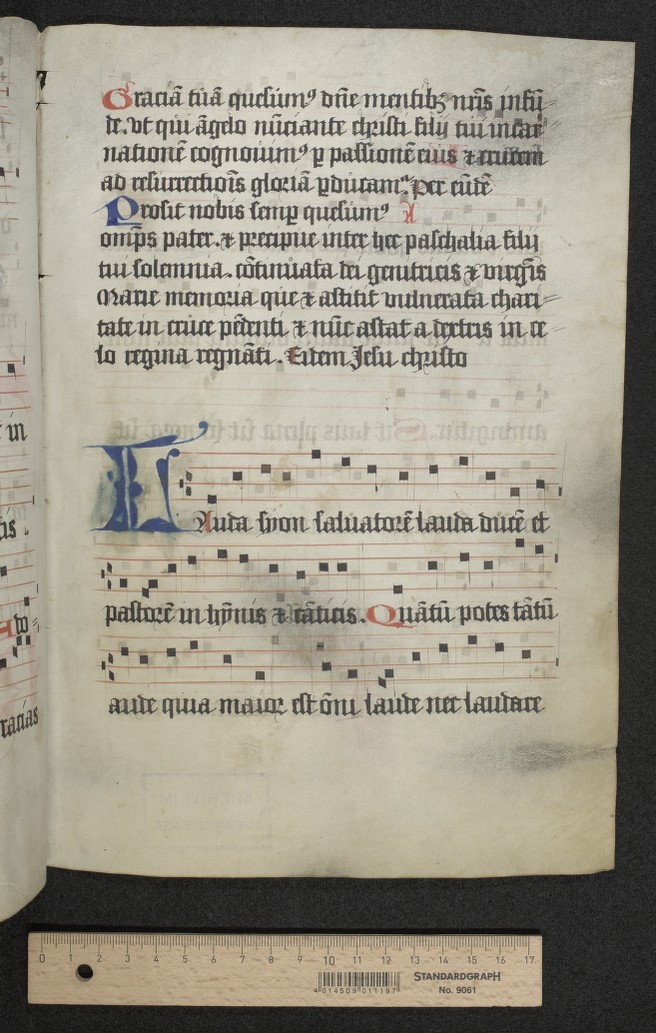 Graciā tuā quesumꝰ dn̄e mentibꝫ nr̄is infū
de. vt qui āgelo nūciante christi filij tui incar
nationē cognouimꝰ ꝑ passionē eius ⁊ crucem
ad resurrectiōis gloriā ꝑducamꝰ. Per eūdē
Prosit nobis semꝑ quesumꝰ
omp̄s pater. ⁊ precipue inter hec paschalia filij
tui solemnia. cōtinuata dei genitricis ⁊ virgīs
Marie memoria que ⁊ astitit vulnerata chari
tate in cruce pēdenti ⁊ nūc astat a dextris in ce
lo regina regnāti. Eidem Jesu christo
in
Lauda syon saluatorē lauda ducē et
pastorē in hȳnis ⁊ cāticis. Quātū potes tātū
aude quia maior est ōni laude nec laudare
racias
0 1 2 3 4 5 6 7 8 9 10 11 12 13 14 15 16 17
4 014509 011197
STANDARDGRAPH
No. 9061